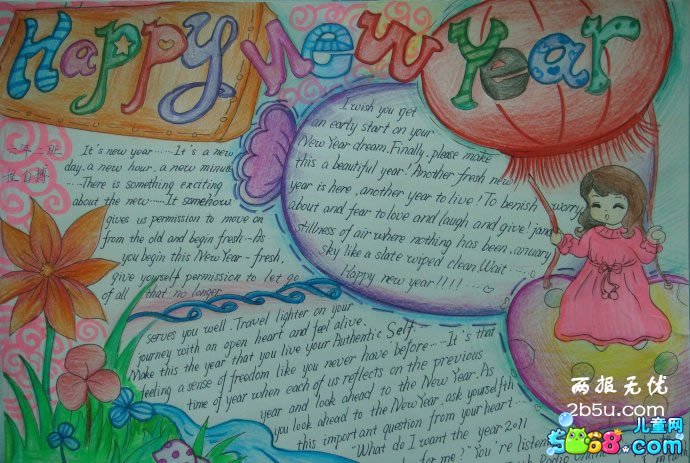 Happy New Year
六年二班
It's new year......It's a new
day, a new hour, a new minute
.....There is something exciting
about the new.....It somehow
gives us permission to move on
from the old and begin fresh...As
you begin this New Year - fresh,
give yourself permission to let go
of all that no longer
serves you well. Travel lighter on your
journey with an open heart and feel alive.
Make this the year that you live your Authentic Self.
feeling a sense of freedom like you never have before.....It's that
time of year when each of us reflects on the previous
year and look ahead to the New Year. As
you look ahead to the New Year, ask yourselfth
this important question from your heart....
"What do I want the year 2011
for me?" You're listen
I wish you get
an early start on your
New Year dream. Finally, please make
this a beautiful year! Another fresh new
year is here, another year to live! To benish worry
about and fear to love and laugh and give! jane
stillness of air where nothing has been, anuary
sky like a slate wiped clean. Wait......
Happy new year!!!!....
两报无忧
2b5u.com
5068.com
儿童网